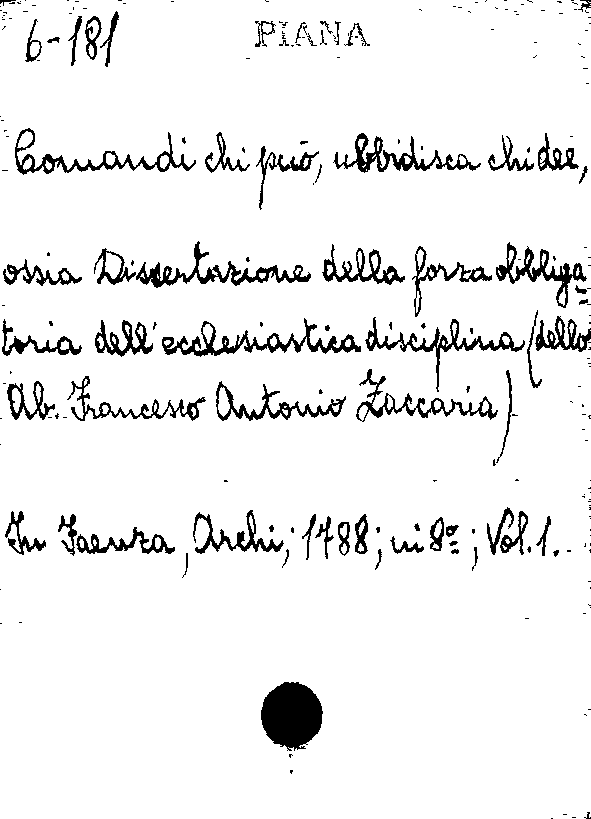 6-181
PIANA
Comandi chi può, ubbidisca chi dee,
ossia Dissertazione della forza obbliga=
toria dell'ecclesiastica disciplina (dello
Ab. Francesco Antonio Zaccaria)
In Faenza, Archi; 1788; in 8º; Vol. 1.